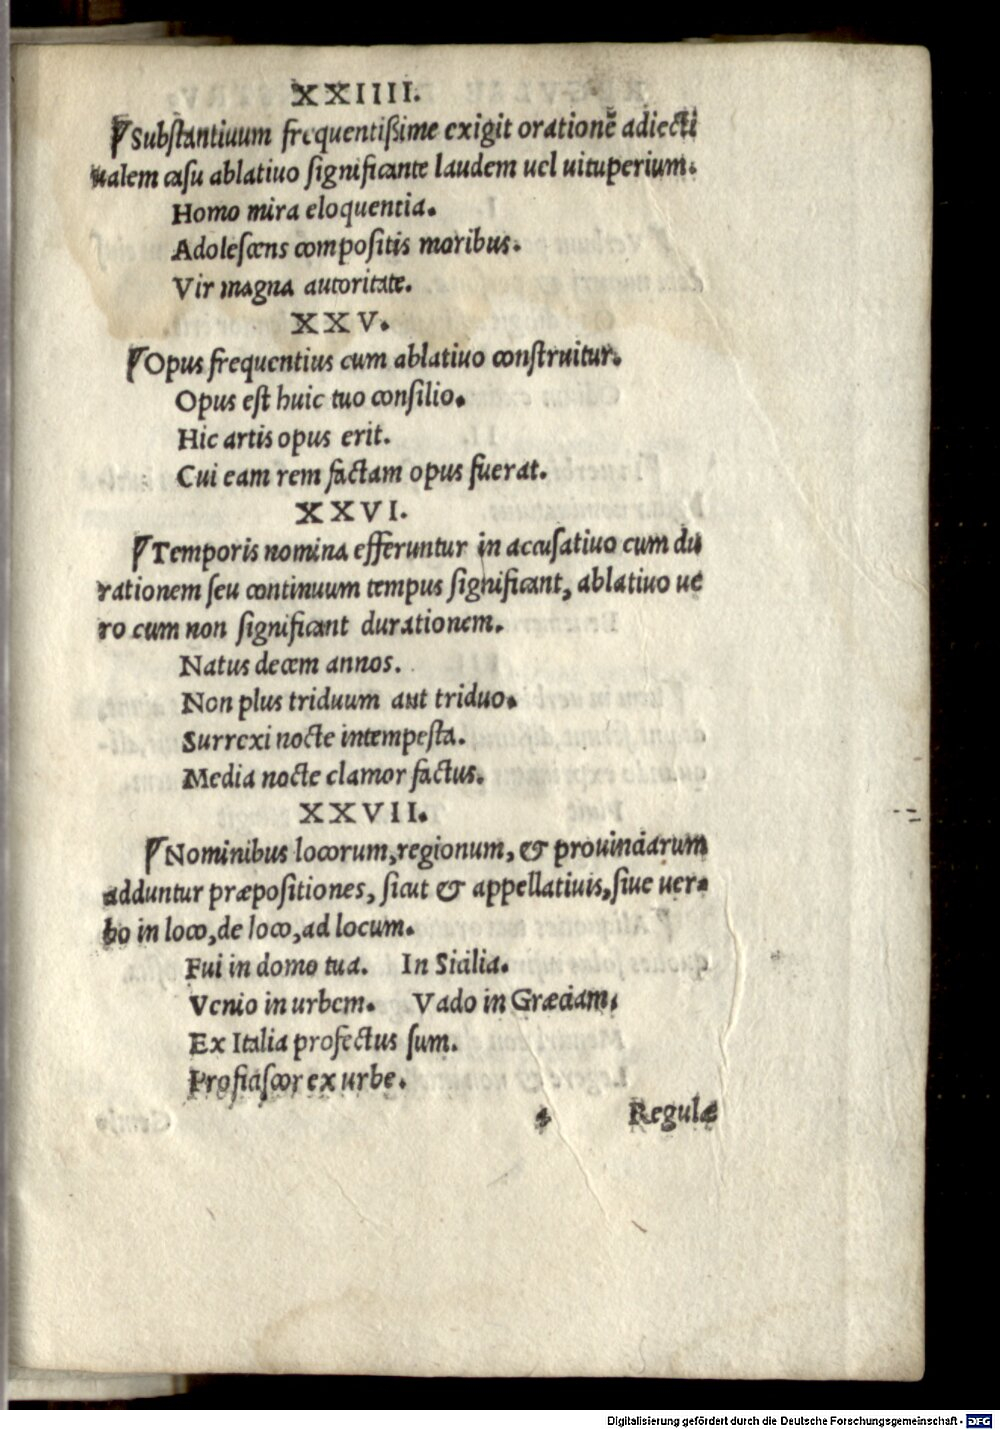 XXIIII.
¶Substantiuum frequentißime exigit orationē adiecti
ualem casu ablatiuo significante laudem uel uituperium.
Homo mira eloquentia.
Adolescens compositis moribus.
Vir magna autoritate.
XXV.
¶Opus frequentius cum ablatiuo construitur.
Opus est huic tuo consilio.
Hic artis opus erit.
Cui eam rem factam opus fuerat.
XXVI.
¶Temporis nomina efferuntur in accusatiuo cum du
rationem seu continuum tempus significant, ablatiuo ue
ro cum non significant durationem.
Natus decem annos.
Non plus triduum aut triduo.
Surrexi nocte intempesta.
Media nocte clamor factus.
XXVII.
¶Nominibus locorum, regionum, & prouinciarum
adduntur præpositiones, sicut & appellatiuis, siue uer-
bo in loco, de loco, ad locum.
Fui in domo tua. In Sicilia.
Venio in urbem. Vado in Græciam.
Ex Italia profectus sum.
Proficiscor ex urbe.
Regulæ
Digitalisierung gefördert durch die Deutsche Forschungsgemeinschaft - DFG